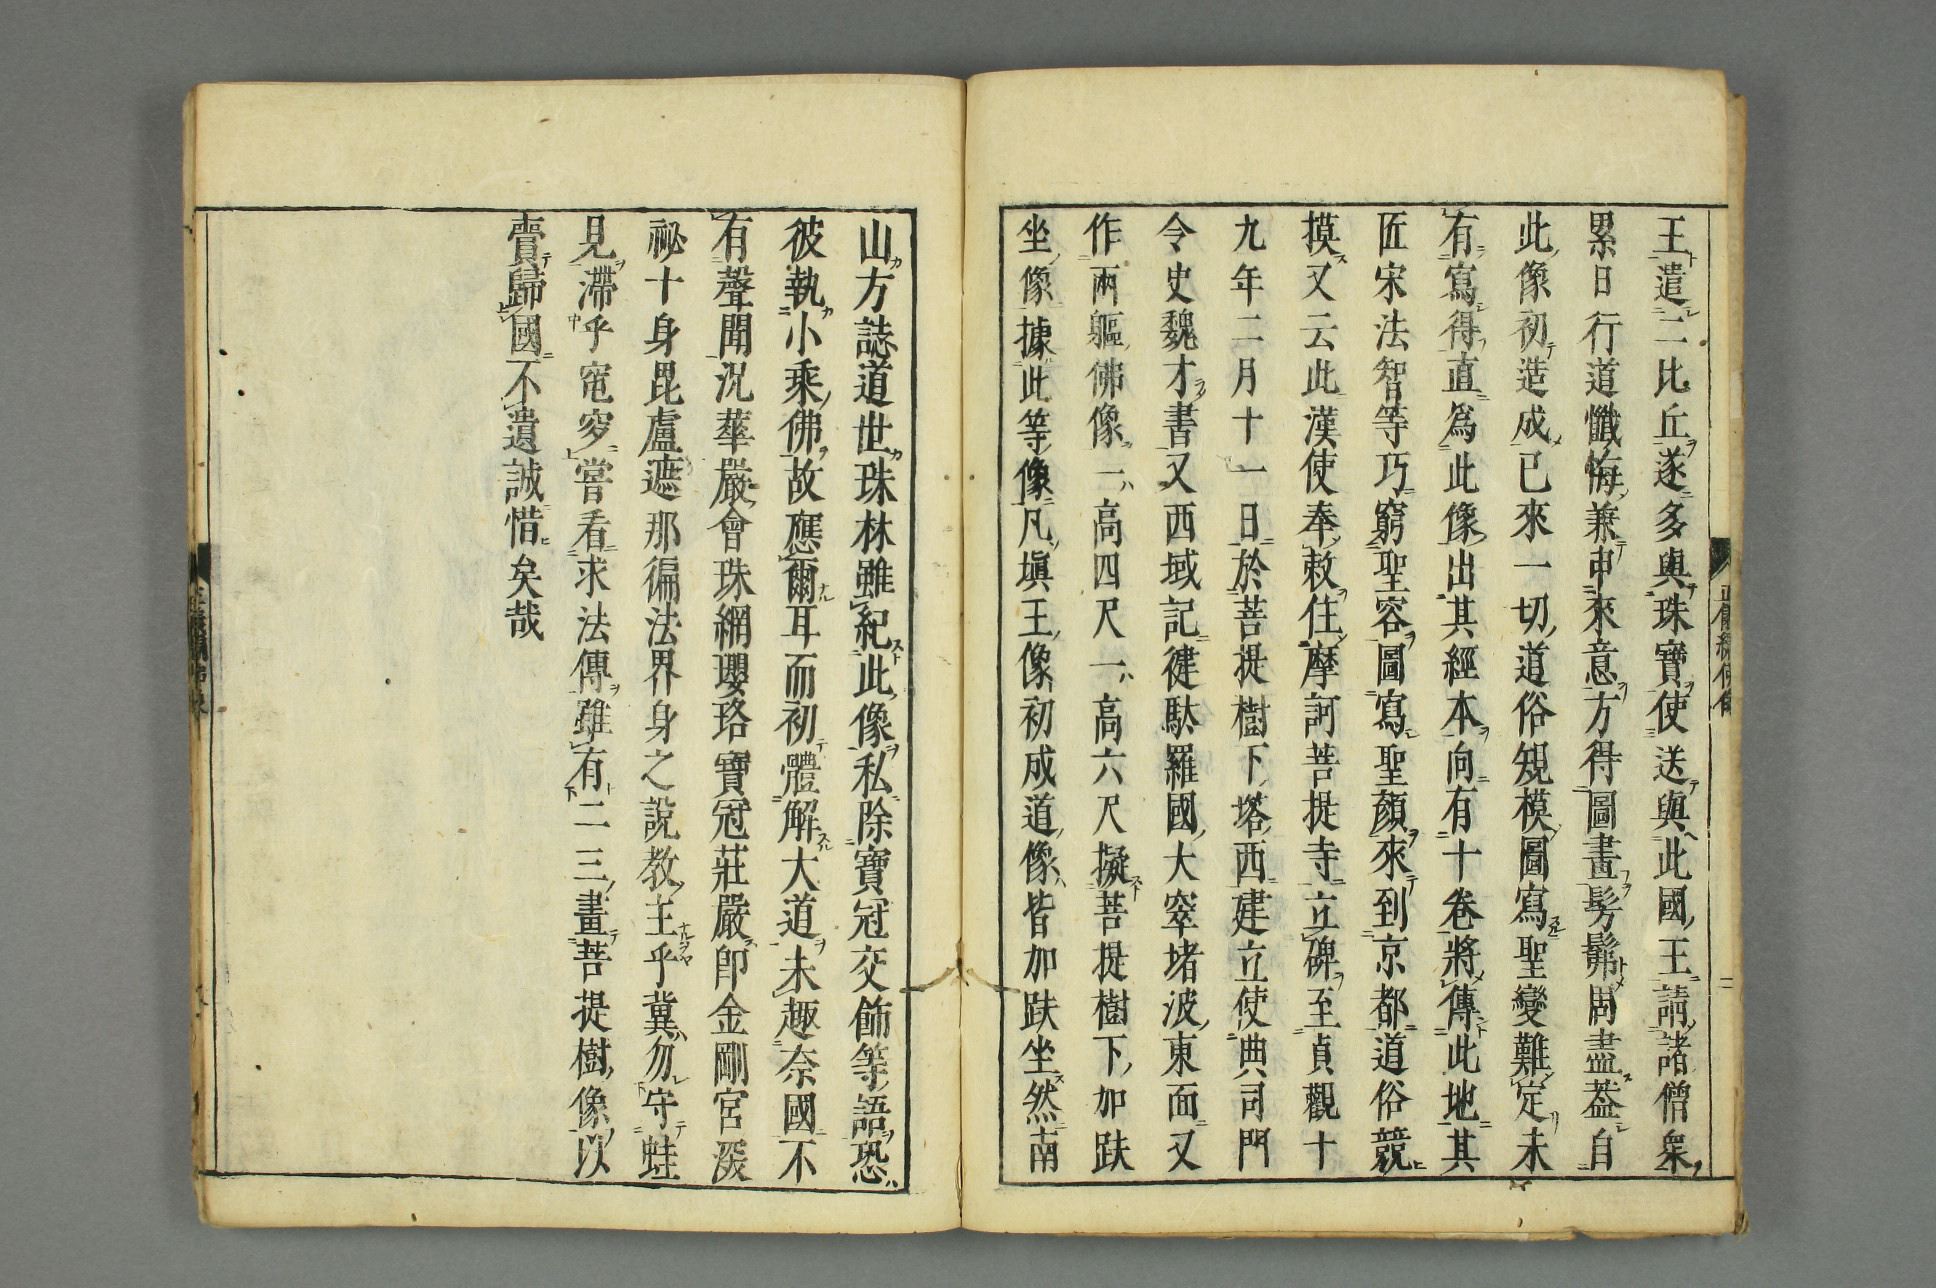 王遣二比丘遂多與珠寶使送與此國王請諸僧衆
累日行道懺悔兼申來意方得圖畫髣髴周盡葢自
此像初造成已來一切道俗規模圖寫聖變難定未
有寫得直爲此像出其經本向有十卷將傳此地其
匠宋法智等巧窮聖容圖寫聖顏來到京都道俗競
摸又云此漢使奉敕往摩訶菩提寺立碑至貞觀十
九年二月十一日於菩提樹下塔西建立使典司門
令史魏才書又西域記健馱羅國大窣堵波東面又
作兩軀佛像一高四尺一高六尺擬菩提樹下加趺
坐像據此等像凡塡王像初成道像皆加趺坐然南
山方誌道世珠林雖紀此像私除寶冠交飾等語恐
彼執小乘佛故應爾耳而初體解大道未趣奈國不
有聲聞況華嚴會珠網瓔珞寶冠莊嚴卽金剛宮深
祕十身毘盧遮那徧法界身之說教主乎冀勿守蛙
見滯乎窀穸嘗看求法傳雖有二三畫菩提樹像以
賷歸國不遺誠惜矣哉